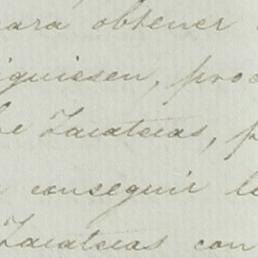 para obtener
iguiesen, proc
be Zacatecas, p
conseguir l
Zacatecas con